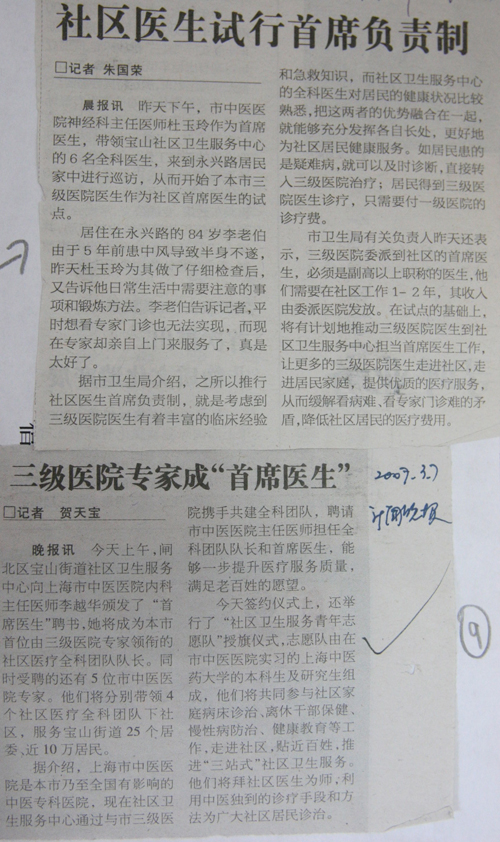 社区医生试行首席负责制
□记者 朱国荣
晨报讯 昨天下午，市中医医
院神经科主任医师杜玉玲作为首席
医生，带领宝山社区卫生服务中心
的6名全科医生，来到永兴路居民
家中进行巡访，从而开始了本市三
级医院医生作为社区首席医生的试
点。
居住在永兴路的84岁李老伯
由于5年前患中风导致半身不遂，
昨天杜玉玲为其做了仔细检查后，
又告诉他日常生活中需要注意的事
项和锻炼方法。李老伯告诉记者，平
时想看专家门诊也无法实现，而现
在专家却亲自上门来服务了，真是
太好了。
据市卫生局介绍，之所以推行
社区医生首席负责制，就是考虑到
三级医院医生有着丰富的临床经验
和急救知识，而社区卫生服务中心
的全科医生对居民的健康状况比较
熟悉，把这两者的优势融合在一起，
就能够充分发挥各自长处，更好地
为社区居民健康服务。如居民患的
是疑难病，就可以及时诊断，直接转
入三级医院治疗；居民得到三级医
院医生诊疗，只需要付一级医院的
诊疗费。
市卫生局有关负责人昨天还表
示，三级医院委派到社区的首席医
生，必须是副高以上职称的医生，他
们需要在社区工作1-2年，其收入
由委派医院发放。在试点的基础上，
将有计划地推动三级医院医生到社
区卫生服务中心担当首席医生工作，
让更多的三级医院医生走进社区，走
进居民家庭，提供优质的医疗服务，
从而缓解看病难、看专家门诊难的矛
盾，降低社区居民的医疗费用。
三级医院专家成“首席医生”
□记者 贺天宝
晚报讯 今天上午，闸
北区宝山街道社区卫生服务
中心向上海市中医医院内科
主任医师李越华颁发了“首
席医生”聘书，她将成为本市
首位由三级医院专家领衔的
社区医疗全科团队队长。同
时受聘的还有5位市中医医
院专家。他们将分别带领4
个社区医疗全科团队下社
区，服务宝山街道25个居
委、近10万居民。
据介绍，上海市中医医
院是本市乃至全国有影响的
中医专科医院，现在社区卫
生服务中心通过与市三级医
院携手共建全科团队，聘请
市中医医院主任医师担任全
科团队队长和首席医生，能
够一步提升医疗服务质量，
满足老百姓的愿望。
今天签约仪式上，还举
行了“社区卫生服务青年志
愿队”授旗仪式，志愿队由在
市中医医院实习的上海中医
药大学的本科生及研究生组
成，他们将共同参与社区家
庭病床诊治、离休干部保健、
慢性病防治、健康教育等工
作，走进社区，贴近百姓，推
进“三站式”社区卫生服务。
他们将拜社区医生为师，利
用中医独到的诊疗手段和方
法为广大社区居民诊治。
2007.3.7
新闻晚报
9